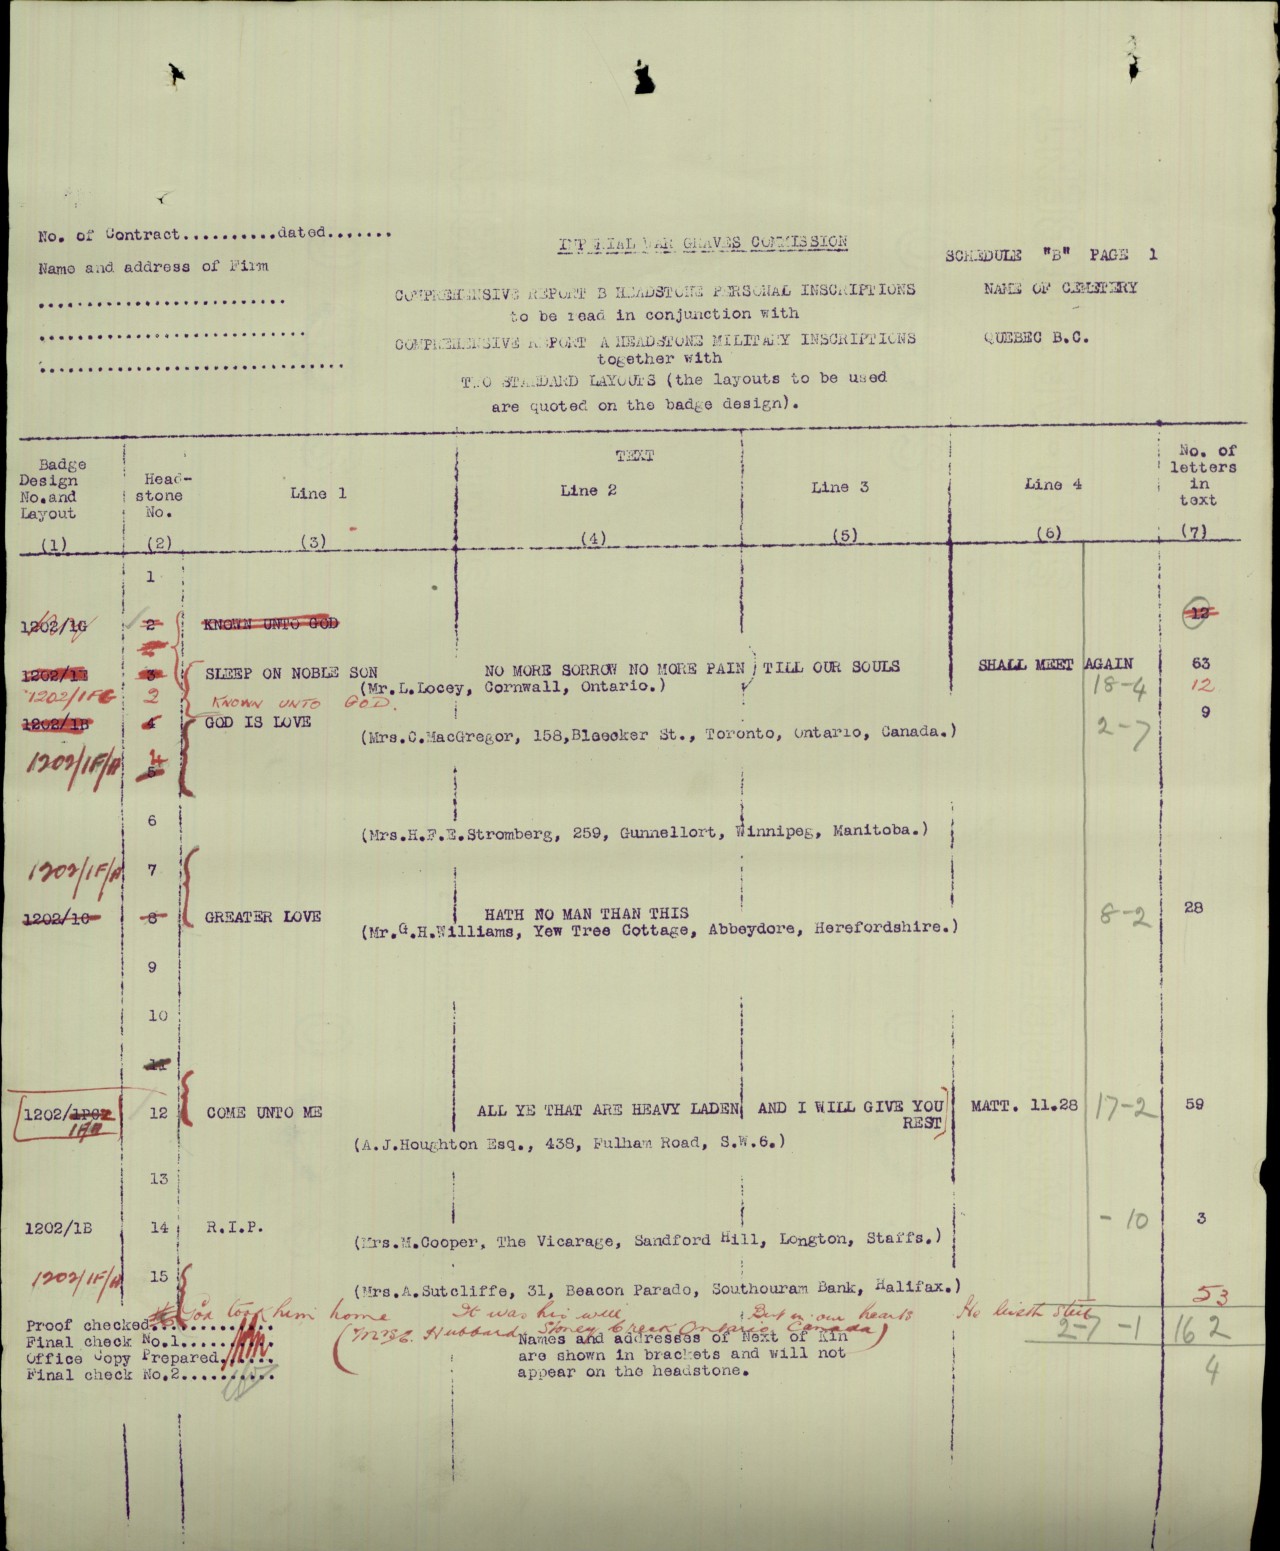 No. of Contract..........dated.......
IMPERIAL WAR GRAVES COMMISSION
SCHEDULE "B" PAGE 1
Name and address of Firm
COMPREHENSIVE REPORT B HEADSTONE PERSONAL INSCRIPTIONS
NAME OF CEMETERY
to be read in conjunction with
COMPREHENSIVE REPORT A HEADSTONE MILITARY INSCRIPTIONS
QUEBEC B.C.
together with
TWO STANDARD LAYOUTS (the layouts to be used
are quoted on the badge design).
Badge Design No.and Layout (1)
Head-stone No. (2)
TEXT
Line 1 (3)
Line 2 (4)
Line 3 (5)
Line 4 (6)
No. of letters in text (7)
1
1202/1G 2 KNOWN UNTO GOD 12
3 SLEEP ON NOBLE SON NO MORE SORROW NO MORE PAIN TILL OUR SOULS SHALL MEET AGAIN 63
(Mr.L.Locey, Cornwall, Ontario.) 18-4
1202/1FG 2 KNOWN UNTO GOD. 12
1202/1B 4 GOD IS LOVE 9
(Mrs.C.MacGregor, 158,Bleecker St., Toronto, Ontario, Canada.) 2-7
1202/1F/A 4
5
6
(Mrs.H.F.E.Stromberg, 259, Gunnellort, Winnipeg, Manitoba.)
1202/1F/A 7
8 GREATER LOVE HATH NO MAN THAN THIS 8-2 28
(Mr.G.H.Williams, Yew Tree Cottage, Abbeydore, Herefordshire.)
9
10
11
1202/ 12 COME UNTO ME ALL YE THAT ARE HEAVY LADEN AND I WILL GIVE YOU MATT. 11.28 17-2 59
REST
(A.J.Houghton Esq., 438, Fulham Road, S.W.6.)
13
1202/1B 14 R.I.P. -10 3
(Mrs.M.Cooper, The Vicarage, Sandford Hill, Longton, Staffs.)
1202/1F/A 15
(Mrs.A.Sutcliffe, 31, Beacon Parado, Southouram Bank, Halifax.)
God took him home It was his will But in our hearts He liveth still 53
Proof checked...............
(Mrs E. Hubbard, Stoney Creek Ontario Canada)
2-7-1 162
Final check No.1..........
Names and addresses of Next of Kin
Office Copy Prepared.......
are shown in brackets and will not
Final check No.2..........
appear on the headstone.
4